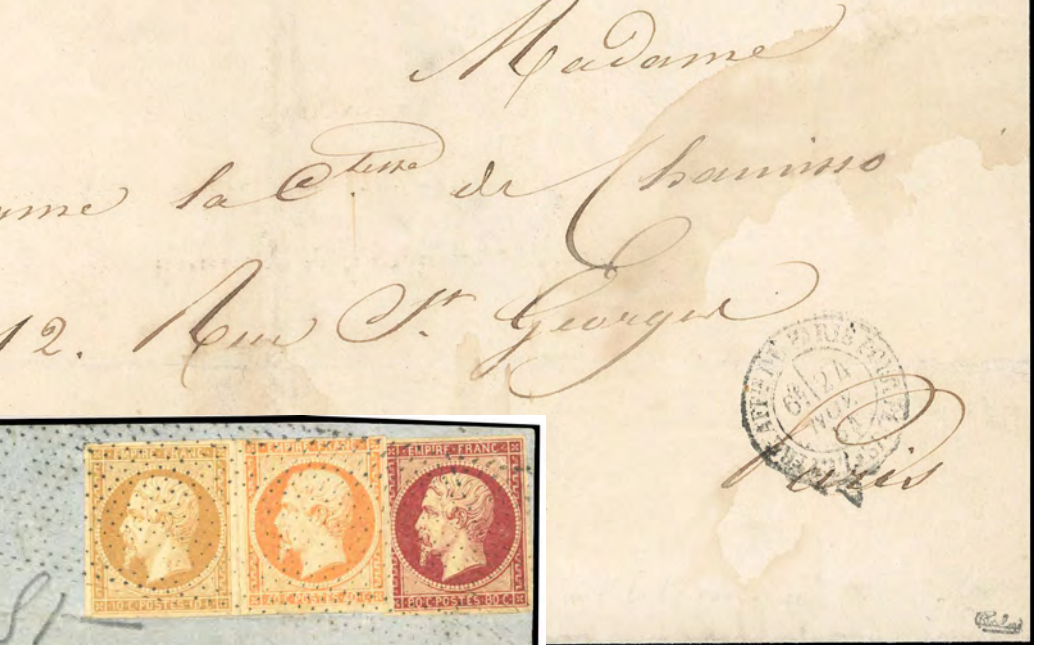 Madame
la C.tesse de Chamisso
12. Rue St. Georges
Paris
24
NOV.
EMPIRE FRANC EMPIRE FRANC EMPIRE FRANC
10 C POSTES 10 C 40 C POSTES 40 C 80 C POSTES 80 C